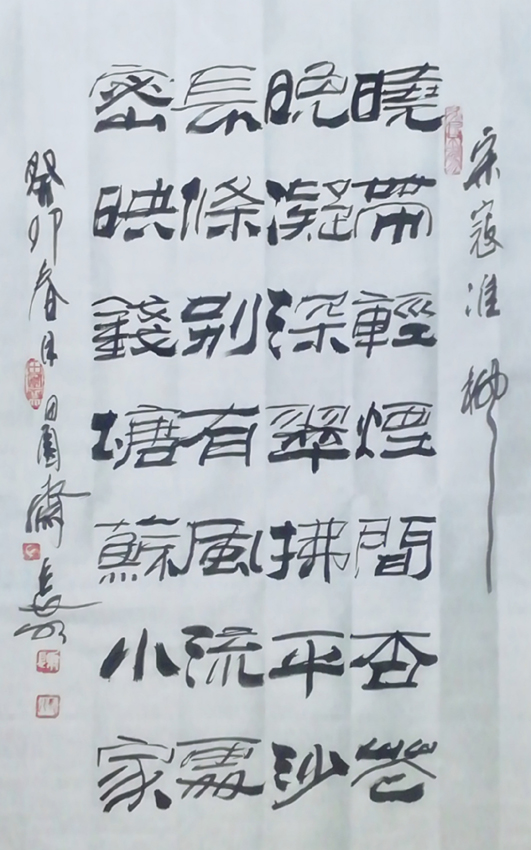 宋寇準 柳
曉帶輕煙間杏花
晚凝深翠拂平沙
長條別有風流處
密映錢塘蘇小家
癸卯春月田園齋